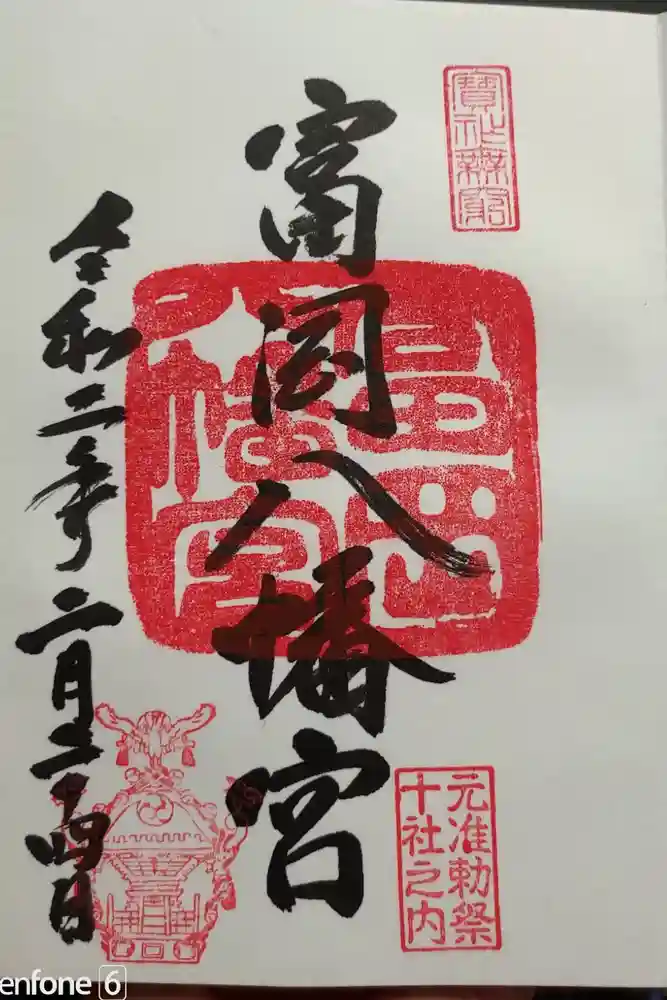 寶祚無窮
富岡八幡宮
富岡
八幡宮
元准勅祭
十社之内
令和二年二月二十四日
enfone 6